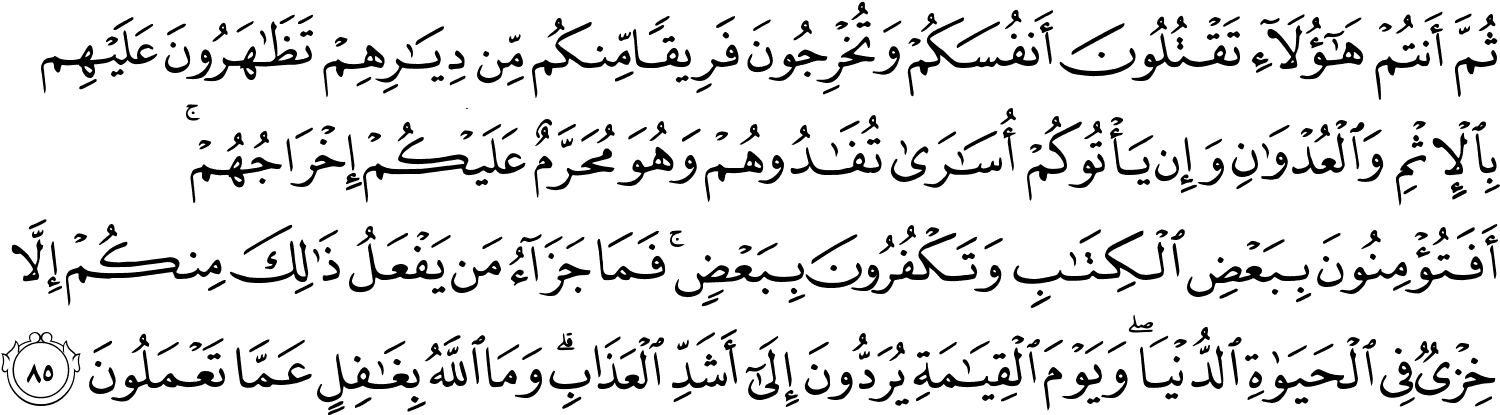 ثُمَّ أَنتُمْ هَـٰٓؤُلَآءِ تَقْتُلُونَ أَنفُسَكُمْ وَتُخْرِجُونَ فَرِيقًا مِّنكُم مِّن دِيَـٰرِهِمْ تَظَـٰهَرُونَ عَلَيْهِم
بِٱلْإِثْمِ وَٱلْعُدْوَٰنِ وَإِن يَأْتُوكُمْ أُسَـٰرَىٰ تُفَـٰدُوهُمْ وَهُوَ مُحَرَّمٌ عَلَيْكُمْ إِخْرَاجُهُمْ ۚ
أَفَتُؤْمِنُونَ بِبَعْضِ ٱلْكِتَـٰبِ وَتَكْفُرُونَ بِبَعْضٍ ۚ فَمَا جَزَآءُ مَن يَفْعَلُ ذَٰلِكَ مِنكُمْ إِلَّا
خِزْىٌ فِى ٱلْحَيَوٰةِ ٱلدُّنْيَا ۖ وَيَوْمَ ٱلْقِيَـٰمَةِ يُرَدُّونَ إِلَىٰٓ أَشَدِّ ٱلْعَذَابِ ۗ وَمَا ٱللَّهُ بِغَـٰفِلٍ عَمَّا تَعْمَلُونَ ٨٥